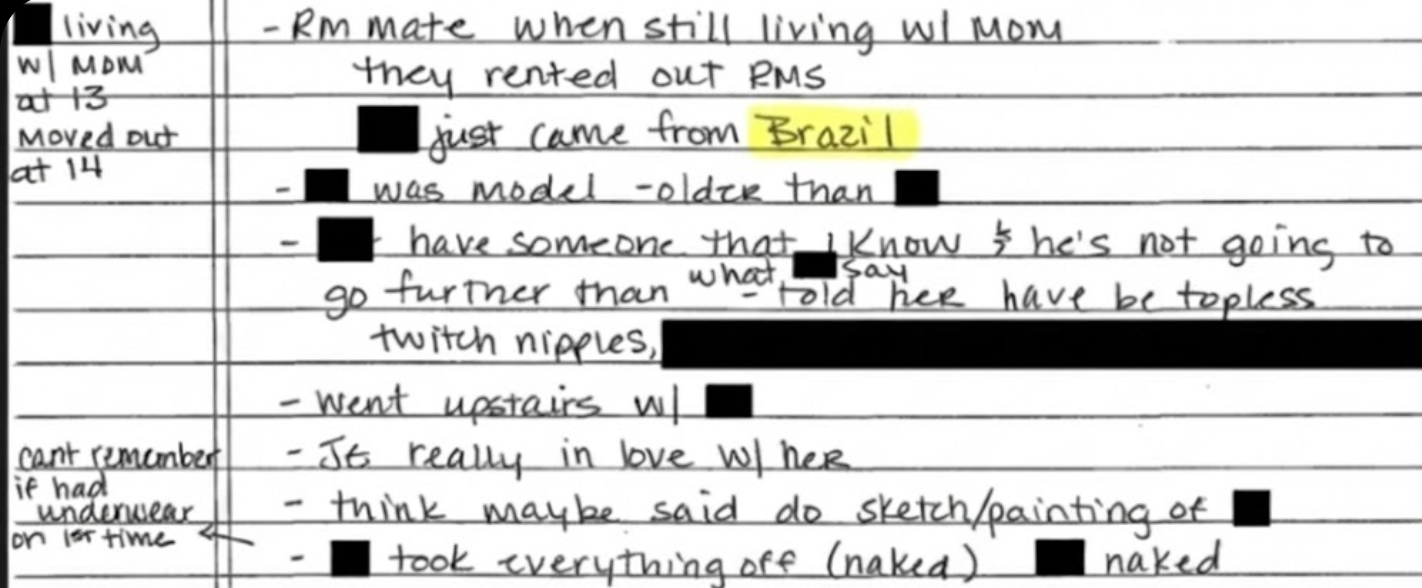 living
w/ MOM
at 13
Moved out
at 14
- Rm mate when still living w/ Mom
they rented out RMS
just came from Brazil
- was model - older than
- have someone that I know & he's not going to
what say
go further than - told her have be topless
twitch nipples,
- went upstairs w/
- JE really in love w/ her
- think maybe said do sketch/painting of
- took everything off (naked) naked
cant remember
if had
underwear
on 1st time